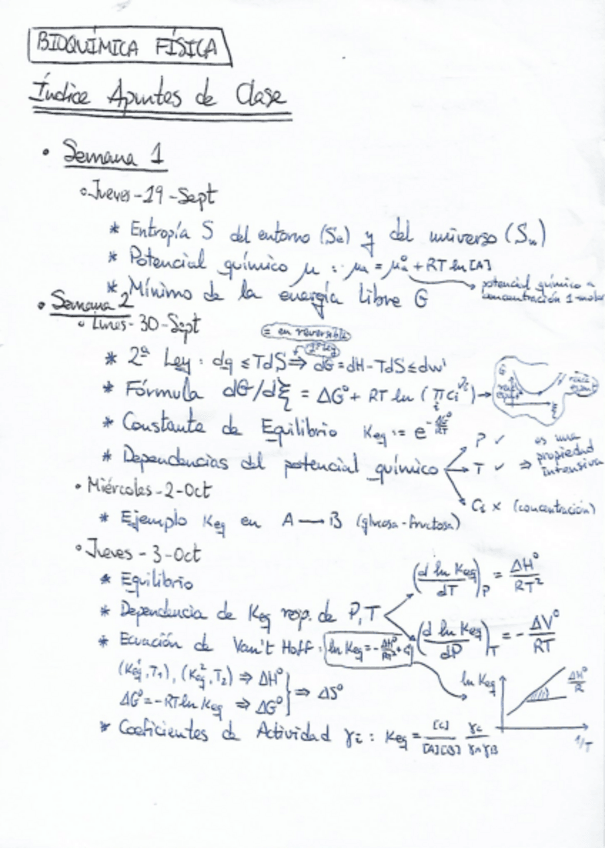 BIOQUÍMICA FÍSICA
Índice Apuntes de Clase
• Semana 1
∘ Jueves-19-Sept
* Entropía S del entorno (Se) y del universo (Su)
* Potencial químico μ : μ = μ° + RT ln[A]
potencial químico a concentración 1-molar
* Mínimo de la energía libre G
• Semana 2
∘ Lunes-30-Sept
= en reversible
* 2ª Ley: dq ≤ TdS ⇒ dG = dH - TdS ≤ dw'
* Fórmula dG/dξ = ΔG° + RT ln (π ci^νi) →
G
ξ
* Constante de Equilibrio Keq := e^-ΔG°/RT
* Dependencias del potencial químico
P ✓
T ✓ ⇒ es una propiedad intensiva
Ci × (concentración)
∘ Miércoles-2-Oct
* Ejemplo Keq en A — B (glucosa-fructosa)
∘ Jueves-3-Oct
* Equilibrio
* Dependencia de Keq resp. de P, T
(d ln Keq/dT)P = ΔH°/RT²
(d ln Keq/dP)T = - ΔV°/RT
* Ecuación de Van't Hoff: ln Keq = -
(Keq¹, T1), (Keq², T2) ⇒ ΔH°
ΔG° = -RT ln Keq ⇒ ΔG° } ⇒ ΔS°
ln Keq
ΔH°/R
1/T
* Coeficientes de Actividad γi : Keq = [C]/[A][B] γc/γAγB